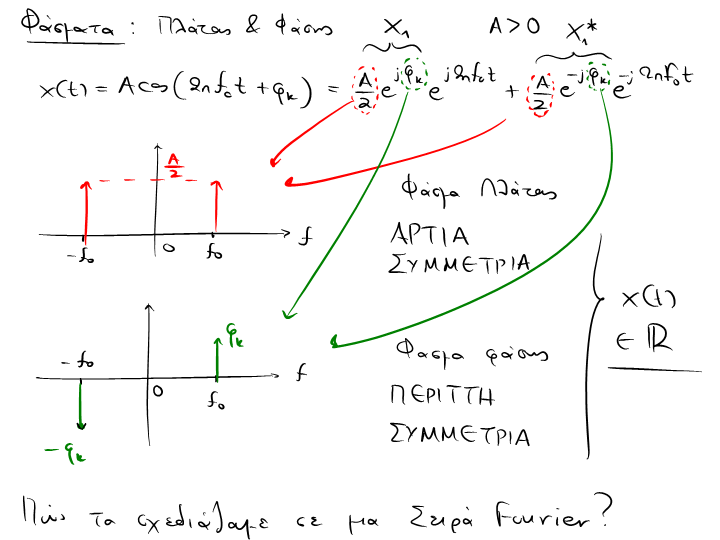 Φάσματα : Πλάτος & Φάσης
X₁ A > 0 X₁*
x(t) = A cos(2πf₀t + φₖ) = A/2 e^{jφₖ} e^{j2πf₀t} + A/2 e^{-jφₖ} e^{-j2πf₀t}
A/2
-f₀ 0 f₀ f
Φάσμα Πλάτος
ΑΡΤΙΑ
ΣΥΜΜΕΤΡΙΑ
x(t)
∈ ℝ
φₖ
-f₀ 0 f₀ f
-φₖ
Φασμα φάσης
ΠΕΡΙΤΤΗ
ΣΥΜΜΕΤΡΙΑ
Πώς τα σχεδιάζαμε σε μια Σειρά Fourier?